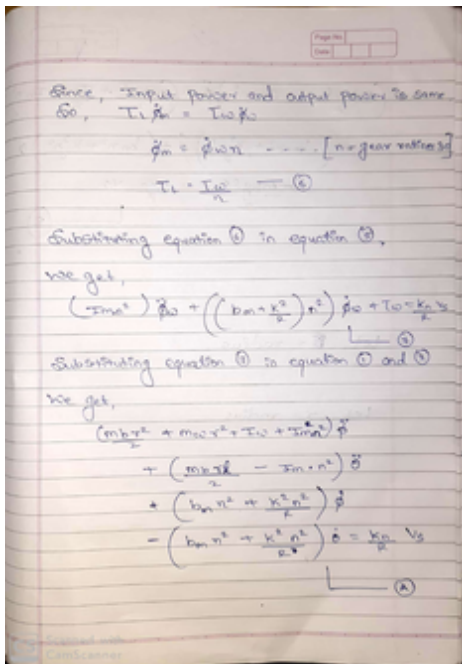 Page No.
Date
Since, Input power and output power is same
So, T₁ φ̇m = Tω φ̇ω
φ̇m = φ̇ω n - - - - - [n = gear ratio
T₁ = Tω/n —
Substituting equation in equation
we get,
(Jmn²) φ̈ω + ((bm + k²/R) n²) φ̇ω + Tω = kn/R Vs
Substituting equation in equation and
we get,
(mbr²/2 + mωr² + Iω + Jmn²) φ̈
+ (mbrl/2 - Jm · n²) θ̈
+ (bm n² + k² n²/R) φ̇
- (bm n² + k² n²/R) θ̇ = kn/R Vs
(A)
Scanned with
CamScanner